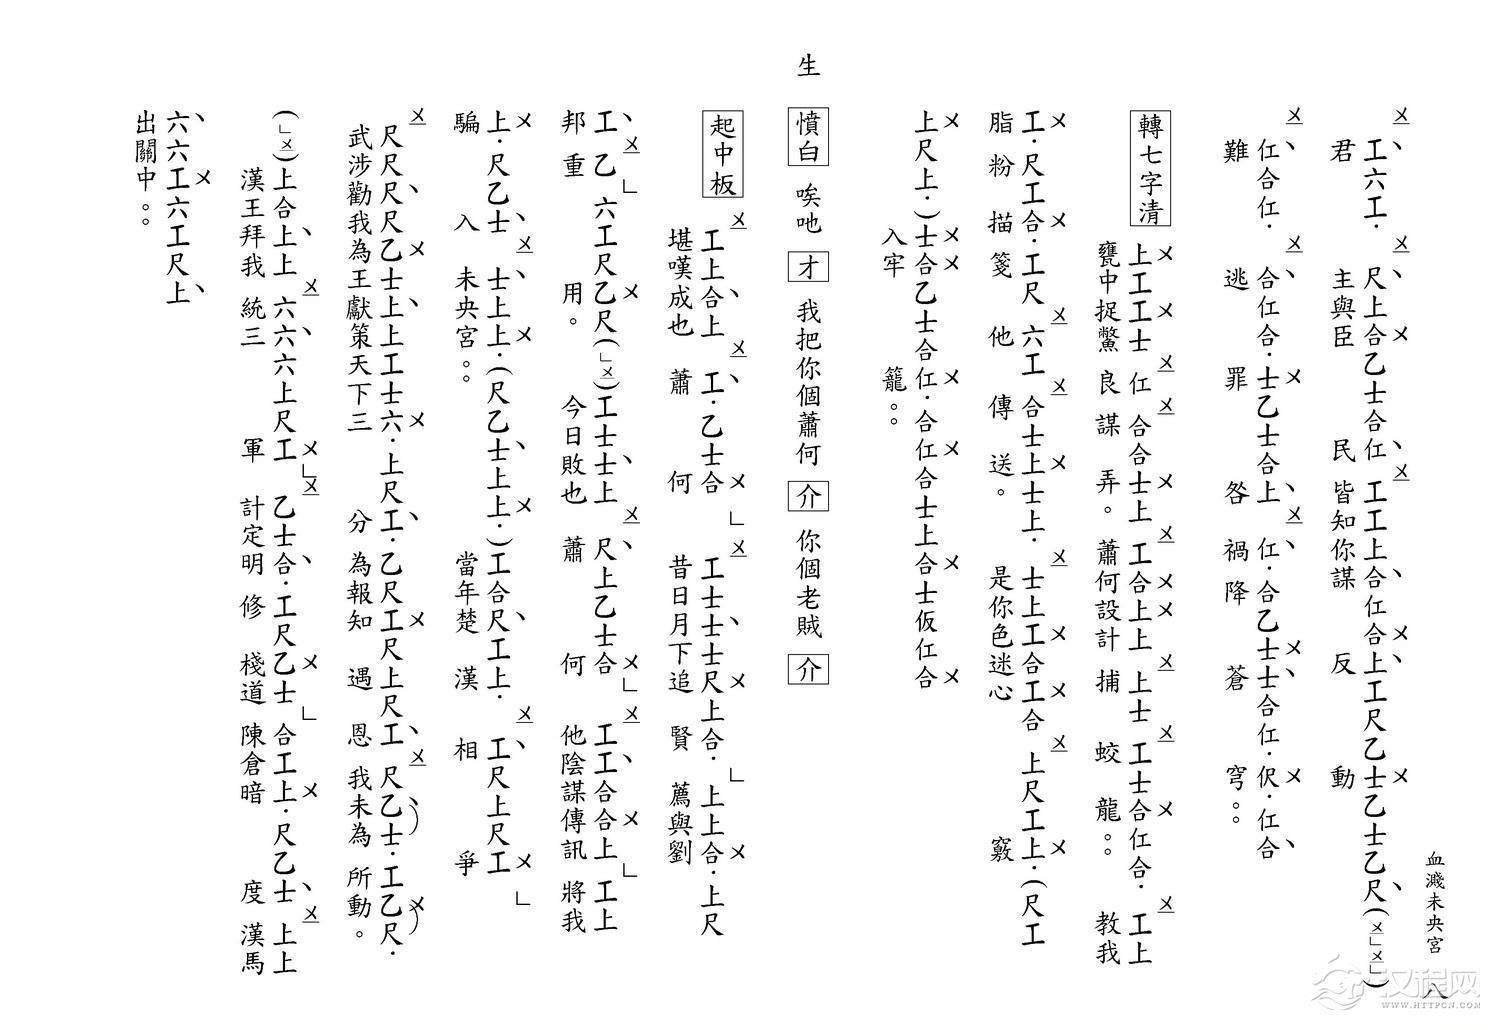 血濺未央宮 八
工六工．尺上合乙士合仜工工上合仜合上工尺乙士乙士乙尺(㇄㇄)
君 主與臣 民 皆知你謀 反 動
仜合仜．合仜合．士乙士合上仜．合乙士士合仜．伬．仜合
難 逃 罪 咎 禍降 蒼 穹。。
轉七字清 上工工士仜合合士上工合上上上士工士合仜合．工上
甕中捉鱉 良謀 弄。 蕭何設計 捕 蛟 龍。。 教我
工．尺工合．工尺六工合士上士上．士上工合工合上尺工上．(尺工
脂粉 描箋 他 傳 送。 是你色迷心 竅
上尺上．)士合乙士合仜．合仜合士上合士仮仜合
入牢 籠。。
生 憤白 唉吔 才 我把你個蕭何 介 你個老賊 介
起中板 工上合上工．乙士合工士士士尺上合．上上合．上尺
堪嘆成也 蕭 何 昔日月下追 賢 薦與劉
工乙六工尺乙尺(㇄)工士士上尺上乙士合工工合合上工上
邦重 用。 今日敗也 蕭 何 他陰謀傳訊 將我
上．尺乙士士上上．(尺乙士上上．)工合尺工上．工尺上尺工
騙 入 未央宮。。 當年楚 漢 相 爭
尺尺尺尺乙士上上工士六．上尺工．乙尺工尺上尺工尺乙士．工乙尺．
武涉勸我為王獻策天下三 分 為報知 遇 恩 我未為 所動。
(㇄)上合上上六六六上尺工乙士合．工尺乙士合工上．尺乙士上上
漢王拜我 統三 軍 計定明 修 棧道 陳倉暗 度 漢馬
六六工六工尺上
出關中。。
汉程网
WWW.HTTPCN.COM